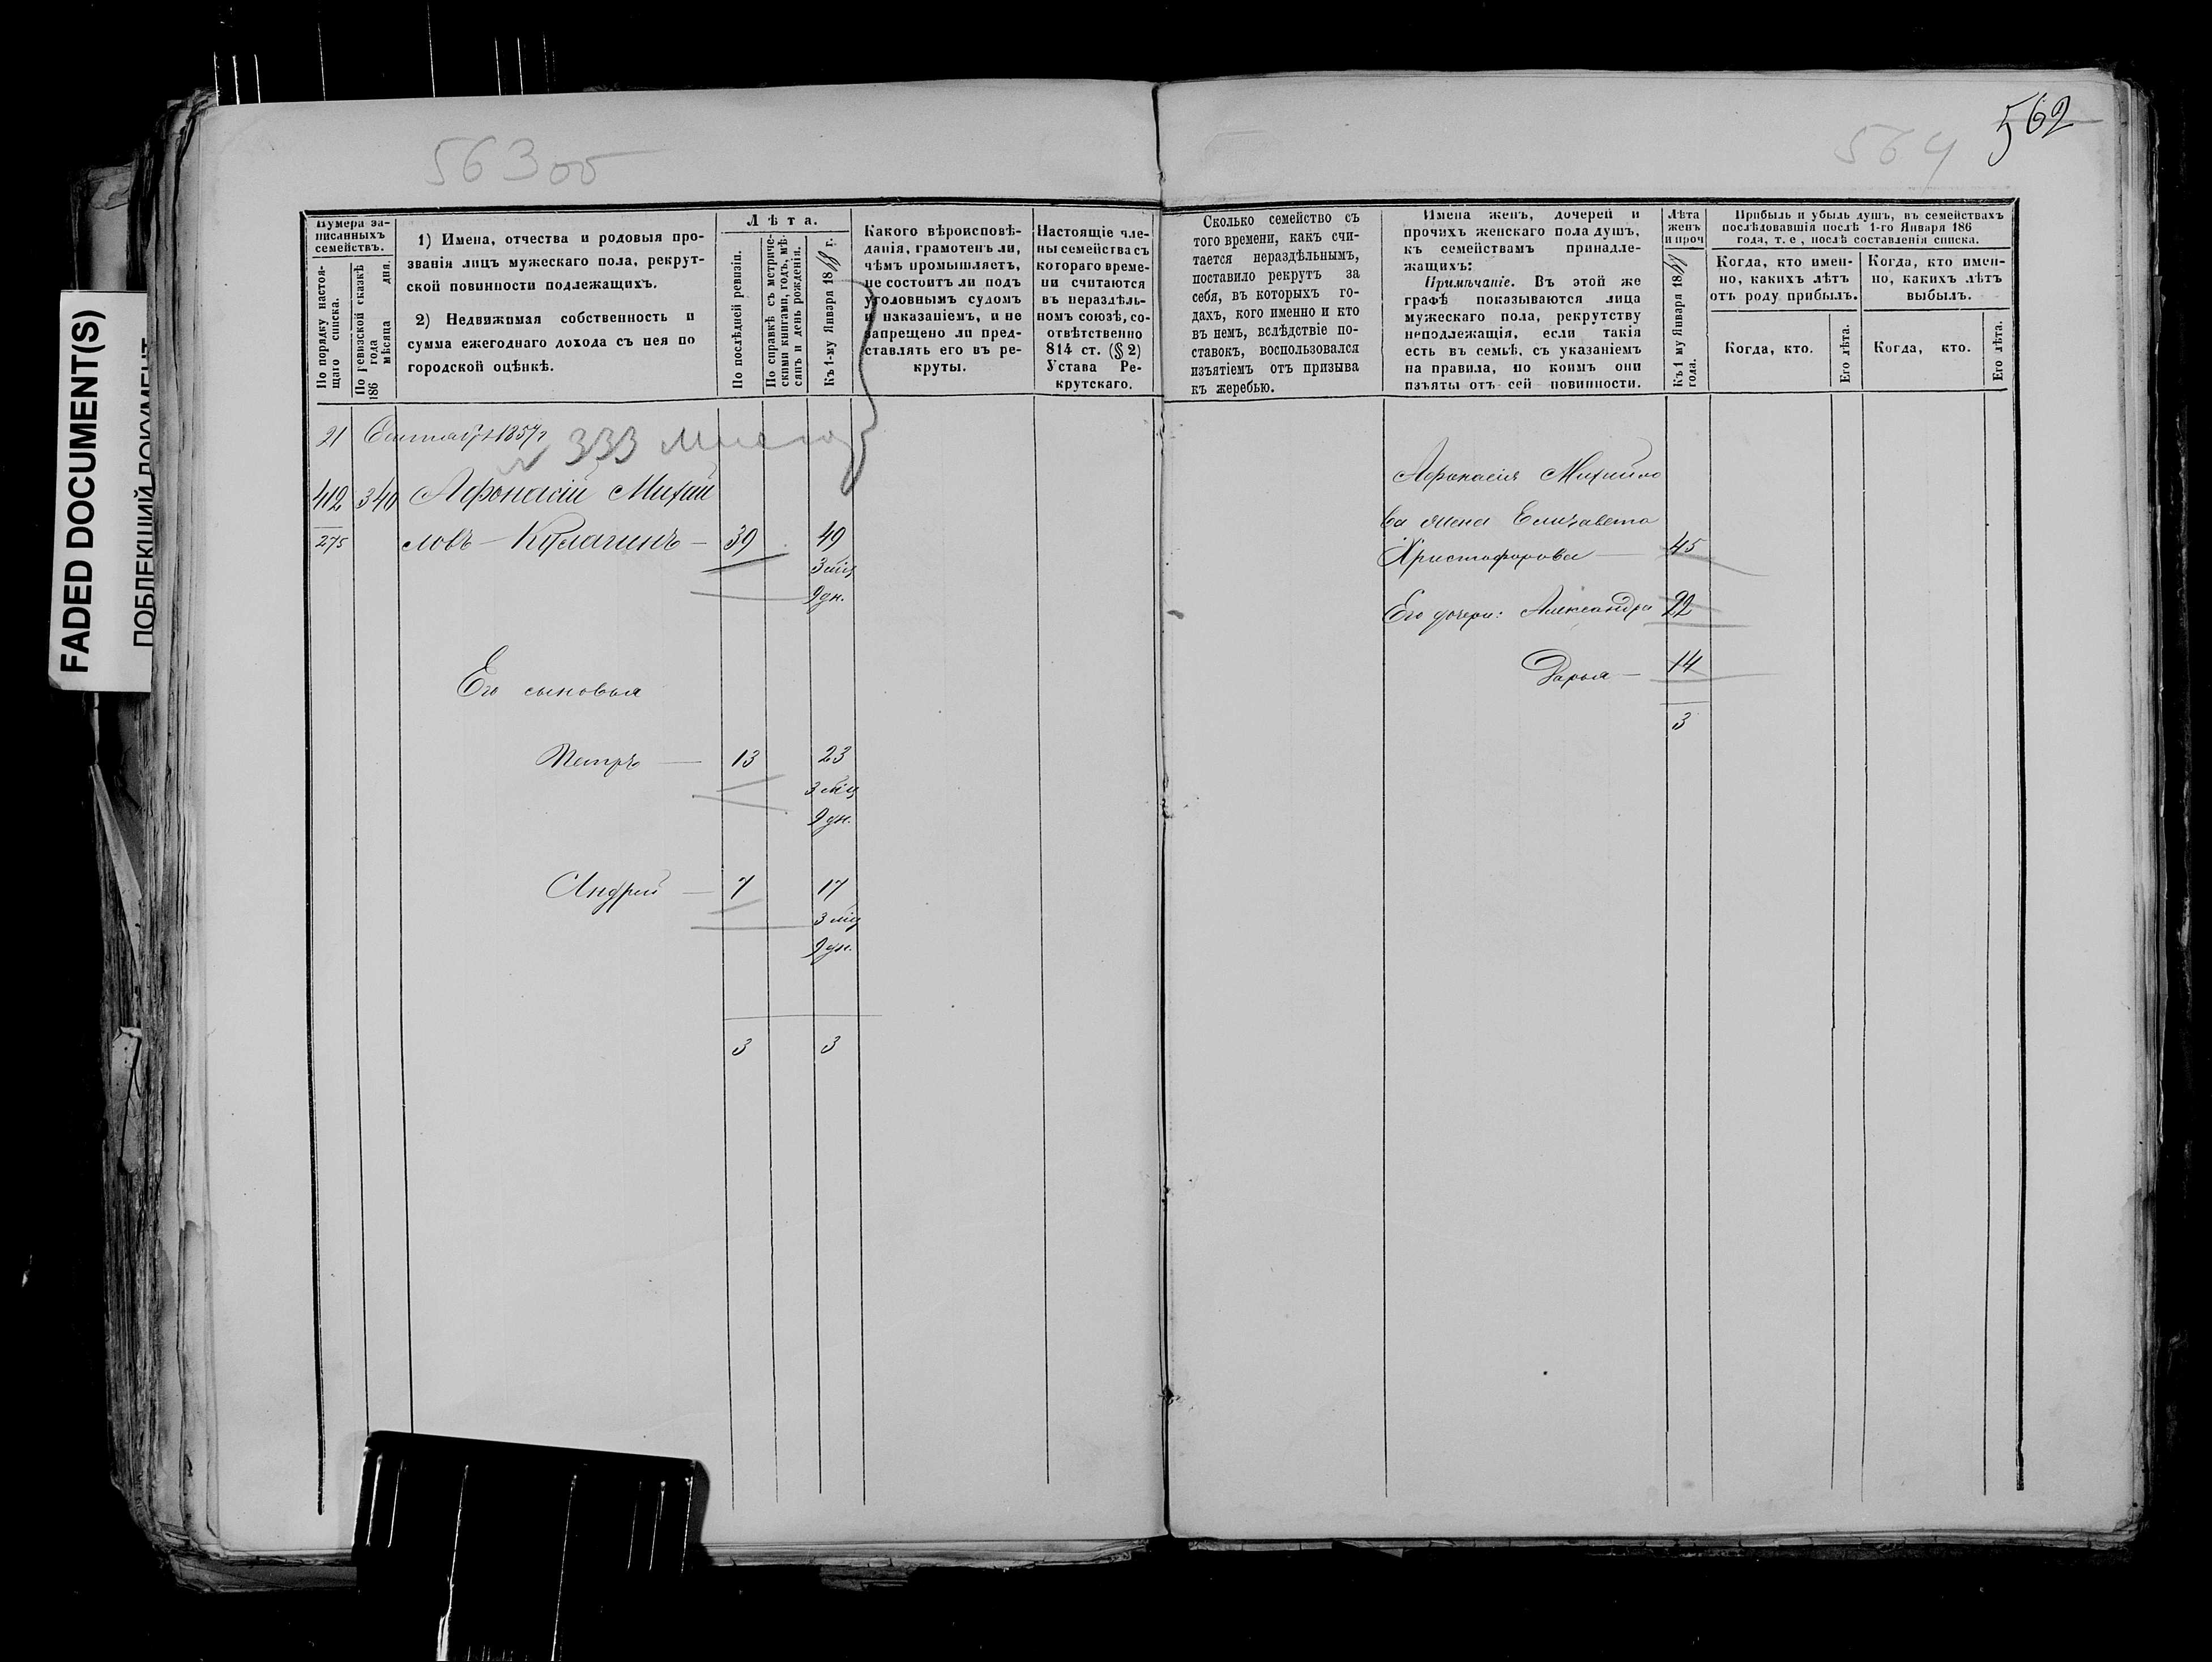 FADED DOCUMENT(S)
ПОБЛЕКШИЙ ДОКУМЕНТ
563 об
564
562
Нумера за-
писанныхъ
семействъ.
По порядку настоя-
щаго списка.
По ревизской сказкѣ
186 года
мѣсяца дня.
1) Имена, отчества и родовыя про-
званія лицъ мужескаго пола, рекрут-
ской повинности подлежащихъ.
2) Недвижимая собственность и
сумма ежегоднаго дохода съ нея по
городской оцѣнкѣ.
Лѣта.
По послѣдней ревизіи.
По справкѣ съ метриче-
скими книгами, годъ, мѣ-
сяцъ и день рожденія.
Къ 1-му Января 1868 г.
Какого вѣроисповѣ-
данія, грамотенъ ли,
чѣмъ промышляетъ,
не состоитъ ли подъ
уголовнымъ судомъ
и наказаніемъ, и не
запрещено ли пред-
ставлять его въ ре-
круты.
Настоящіе чле-
ны семейства съ
котораго време-
ни считаются
въ нераздѣль-
номъ союзѣ, со-
отвѣтственно
814 ст. (§ 2)
Устава Ре-
крутскаго.
Сколько семейство съ
того времени, какъ счи-
тается нераздѣльнымъ,
поставило рекрутъ за
себя, въ которыхъ го-
дахъ, кого именно и кто
въ немъ, вслѣдствіе по-
ставокъ, воспользовался
изъятіемъ отъ призыва
къ жеребью.
Имена женъ, дочерей и
прочихъ женскаго пола душъ,
къ семействамъ принадле-
жащихъ:
Примѣчаніе. Въ этой же
графѣ показываются лица
мужескаго пола, рекрутству
неподлежащія, если такія
есть въ семьѣ, съ указаніемъ
на правила, по коимъ они
изъяты отъ сей повинности.
Лѣта
женъ
и проч
Къ 1 му Января 1868
года.
Прибыль и убыль душъ, въ семействахъ
послѣдовавшія послѣ 1-го Января 186
года, т. е , послѣ составленія списка.
Когда, кто имен-
но, какихъ лѣтъ
отъ роду прибылъ.
Когда, кто имен-
но, какихъ лѣтъ
выбылъ.
Когда, кто.
Его лѣта.
Когда, кто.
Его лѣта.
21 Сентября 1857 г
№ 333
412 340 Афонасій Михай
275 ловъ - Кулагинъ - 39 49
3 мѣц
9 дн.
Его сыновья
Петръ — 13 23
3 мѣц
9 дн.
Андрей — 7 17
3 мѣц
9 дн.
3 3
Афанасія Михайло
ва жена Елизавета
Христофорова — 45
Его дочери: Александра 22
Дарья — 14
3